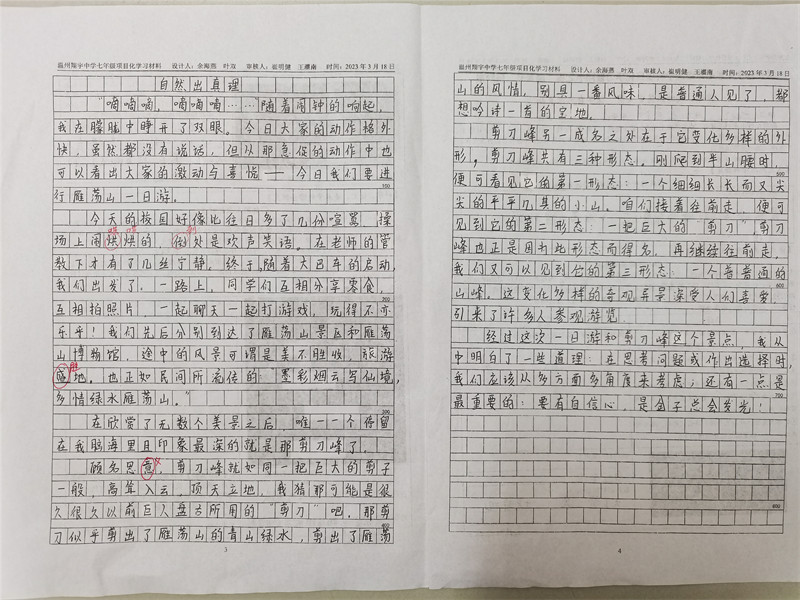 温州翔宇中学七年级项目化学习材料 设计人：余海燕 叶双 审核人：崔明健 王耀南 时间：2023年3月18日
自然出真理
“嘀嘀嘀，嘀嘀嘀……随着闹钟的响起，
我在朦胧中睁开了双眼。今日大家的动作格外
快，虽然都没有说话，但从那急促的动作中也
可以看出大家的激动与喜悦——今日我们要进
100
行雁荡山一日游。
今天的校园好像比往日多了几份喧嚣，操
场上闹烘烘的，到处是欢声笑语。在老师的管
教下才有了几丝宁静。终于，随着大巴车的启动，
我们出发了，一路上，同学们互相分享零食，
200
互相拍照片，一起聊天一起打游戏，玩得不亦
乐乎！我们先后分别到达了雁荡山景区和雁荡
山博物馆，途中的风景可谓是美不胜收，旅游
盛地。也正如民间所流传的：墨彩烟云写仙境，
胜
多情绿水雁荡山。”
300
在欣赏了无数个美景之后，唯一一个停留
在我脑海里且印象最深的就是那剪刀峰了。
顾名思意，剪刀峰就如同一把巨大的剪子
义
一般，高耸入云，顶天立地，我猜那可能是很
久很久以前巨人盘古所用的“剪刀”吧，那剪
400
刀似乎剪出了雁荡山的青山绿水，剪出了雁荡
3
温州翔宇中学七年级项目化学习材料 设计人：余海燕 叶双 审核人：崔明健 王耀南 时间：2023年3月18日
山的风情，别具一番风味。是普通人见了，都
想吟诗一首的宝地。
剪刀峰另一成名之处在于它变化多样的外
形，剪刀峰共有三种形态。刚爬到半山腰时，
500
便可看见它的第一形态：一个细细长长而又尖
尖的平平凡其的小山。咱们接着往前走，便可
见到它的第二形态：一把巨大的“剪刀”，剪刀
峰也正是因为此形态而得名，再继续往前走，
我们又可以见到它的第三形态：一个普普通的
600
山峰。这变化多样的奇观异景深受人们喜爱，
引来了许多人参观游览。
经过这次一日游和剪刀峰这个景点，我从
中明白了一些道理：在思考问题或作出选择时，
我们应该从多方面多角度来考虑；还有一点是
700
最重要的：要有自信心，是金子总会发光！
800
4